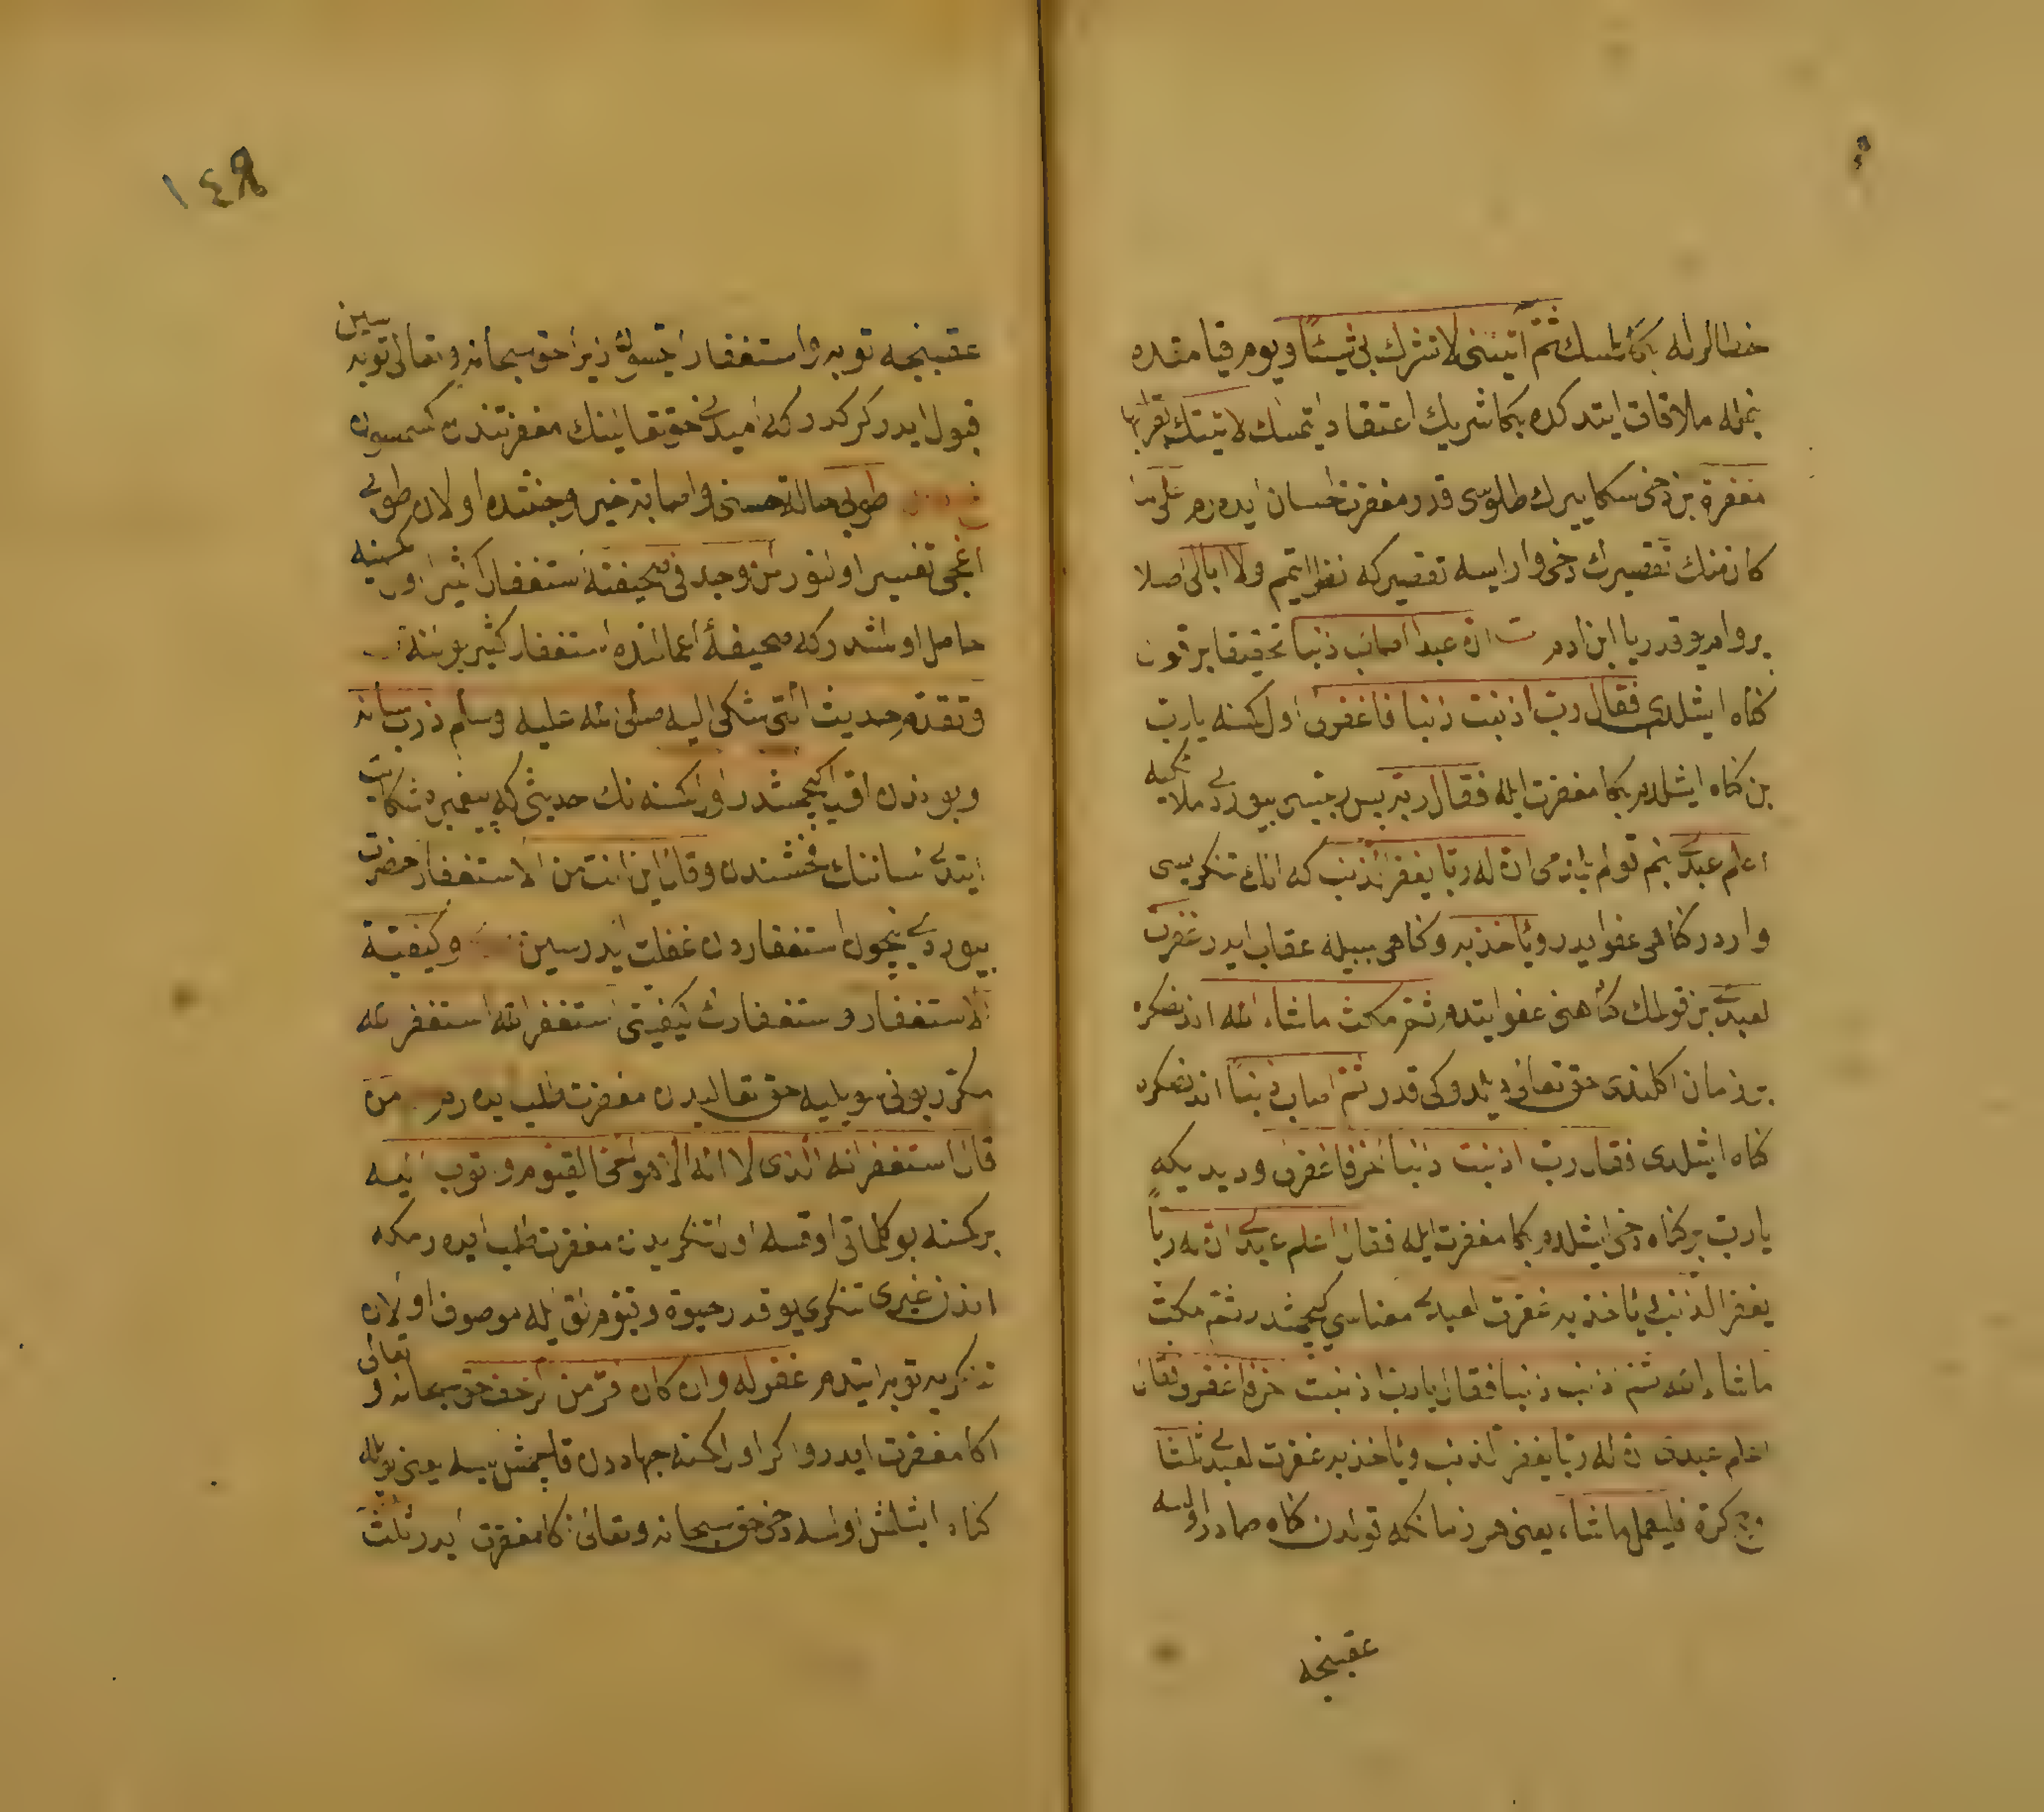 خطالرله بكا تلسك ثم اتيتنى لا تشرك بى شيئا ويوم قيامتده
بنمله ملاقات ايتدكده بكا شريك اعتقاد ايتمسك لاتيتك بقرابها
مغفرة بن دخى سكا ييرك طلوسى قدر مغفرت احسان ايدرم على ما
كان منك تقصيرك دخى وار ايسه تقصيركه نظر ايتمم ولا ابالى اصلا
پروام يوقدر يا ابن ادم ان عبدا اصاب ذنبا تحقيقا بر قول
كناه ايشلدى فقال رب اذنبت ذنبا فاغفرلى اول كسنه يا رب
بن كناه ايشلدم بكا مغفرت ايله فقال ربه پس ربيسى بيوردى ملائكيه
اعلم عبدى بنم قولم بلدمى ان له ربا يغفر الذنب كه انك تنكريسى
واردر كناهى عفو ايدر ويأخذ به وكناهى سببيله عقاب ايدر غفرت
لعبدى بن قولمك كناهنى عفو ايتدم ثم مكث ما شاء الله اندنصكره
بر زمان اكلندى حق تعالى ديلدوكى قدر ثم اصاب ذنبا اندنصكره
كناه ايشلدى فقال رب اذنبت ذنبا اخر فاغفرلى وديديكه
يا رب بر كناه دخى ايشلدم بكا مغفرت ايله فقال اعلم عبدى ان له ربا
يغفر الذنب ويأخذ به غفرت لعبدى معناسى كچمشدر ثم مكث
ما شاء الله ثم اذنب ذنبا فقال يا رب اذنبت اخر فاغفرلى فقال
اعلم عبدى ان له ربا يغفر الذنب ويأخذ به غفرت لعبدى ثلثا
كرة فليعمل ما شاء يعنى هر زمانكه قولدن كناه صادر اولسه
عقبنجه
١٤٩
عقبنجه توبه و استغفار ايتسون زيرا حق سبحانه وتعالى توبه سين
قبول ايدر كركدركه اميدى حق تعالينك مغفرتندن كسمسون
طوبى حالة حسنى واصابة خير وجنتده اولان طوبى
اغجى تفسير اولنور لمن وجد فى صحيفته استغفارا كثيرا اول كسنيه
حاصل اولشدركه صحيفۀ اعمالنده استغفار كثير بولنه
وتقدم حديث الذى شكى اليه صلى الله عليه وسلم ذرب لسانه
وبوندن اقدم كچمشدر اول كسنه نك حديثى كه پيغمبره شكايت
ايتدى لساننك فحشندن وقال اين انت من الاستغفار حضرت
بيوردى نيچون استغفاردن غفلت ايدرسين وكيفية
الاستغفار واستغفارك كيفيتى استغفر الله استغفر الله
مكرر بونى سويليه حق تعاليدن مغفرت طلب ايدرم من
قال استغفر الله الذى لا اله الا هو الحى القيوم واتوب اليه
بر كمسنه بو كلماتى اوقسه اول تنكريدن مغفرت طلب ايدرمكه
اندن غيرى تنكرى يوقدر حيوة وقيوملق ايله موصوف اولان
تنكريه توبه ايتدم غفر له وان كان فر من الزحف حق سبحانه و تعالى
اكا مغفرت ايدر واكر اول كمسنه جهاددن قاچمش ايسه يعنى بويله
كناه ايشلمش اولسه دخى حق سبحانه وتعالى اكا مغفرت ايدر ثلث